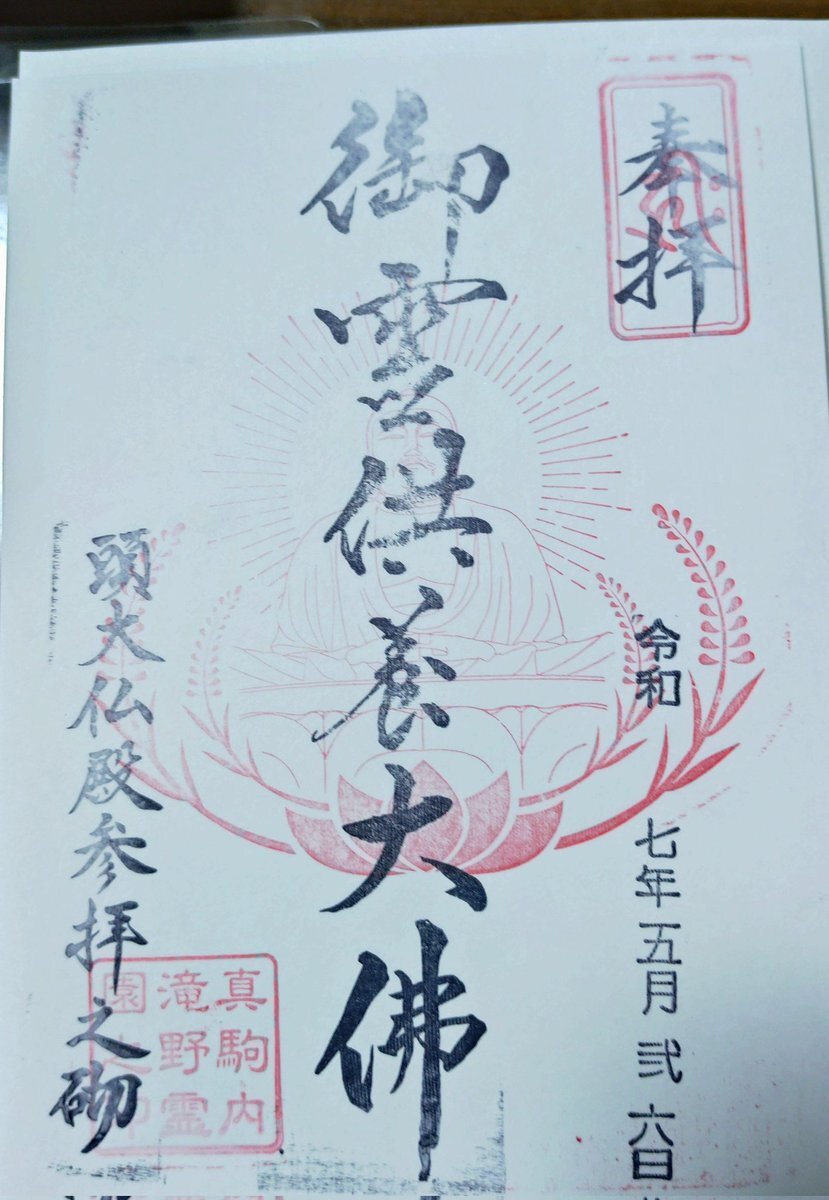 奉拝
令和 七年 五月 弐 六日
御霊供養大佛
頭大仏殿参拝之砌
真駒内
滝野霊
園之印